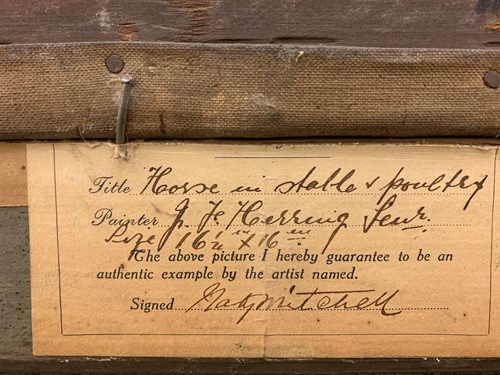 Title Horse in stable & poultry
Painter J. F. Herring Senr.
size 16½ in x 16 in
The above picture I hereby guarantee to be an
authentic example by the artist named.
Signed Mitchell